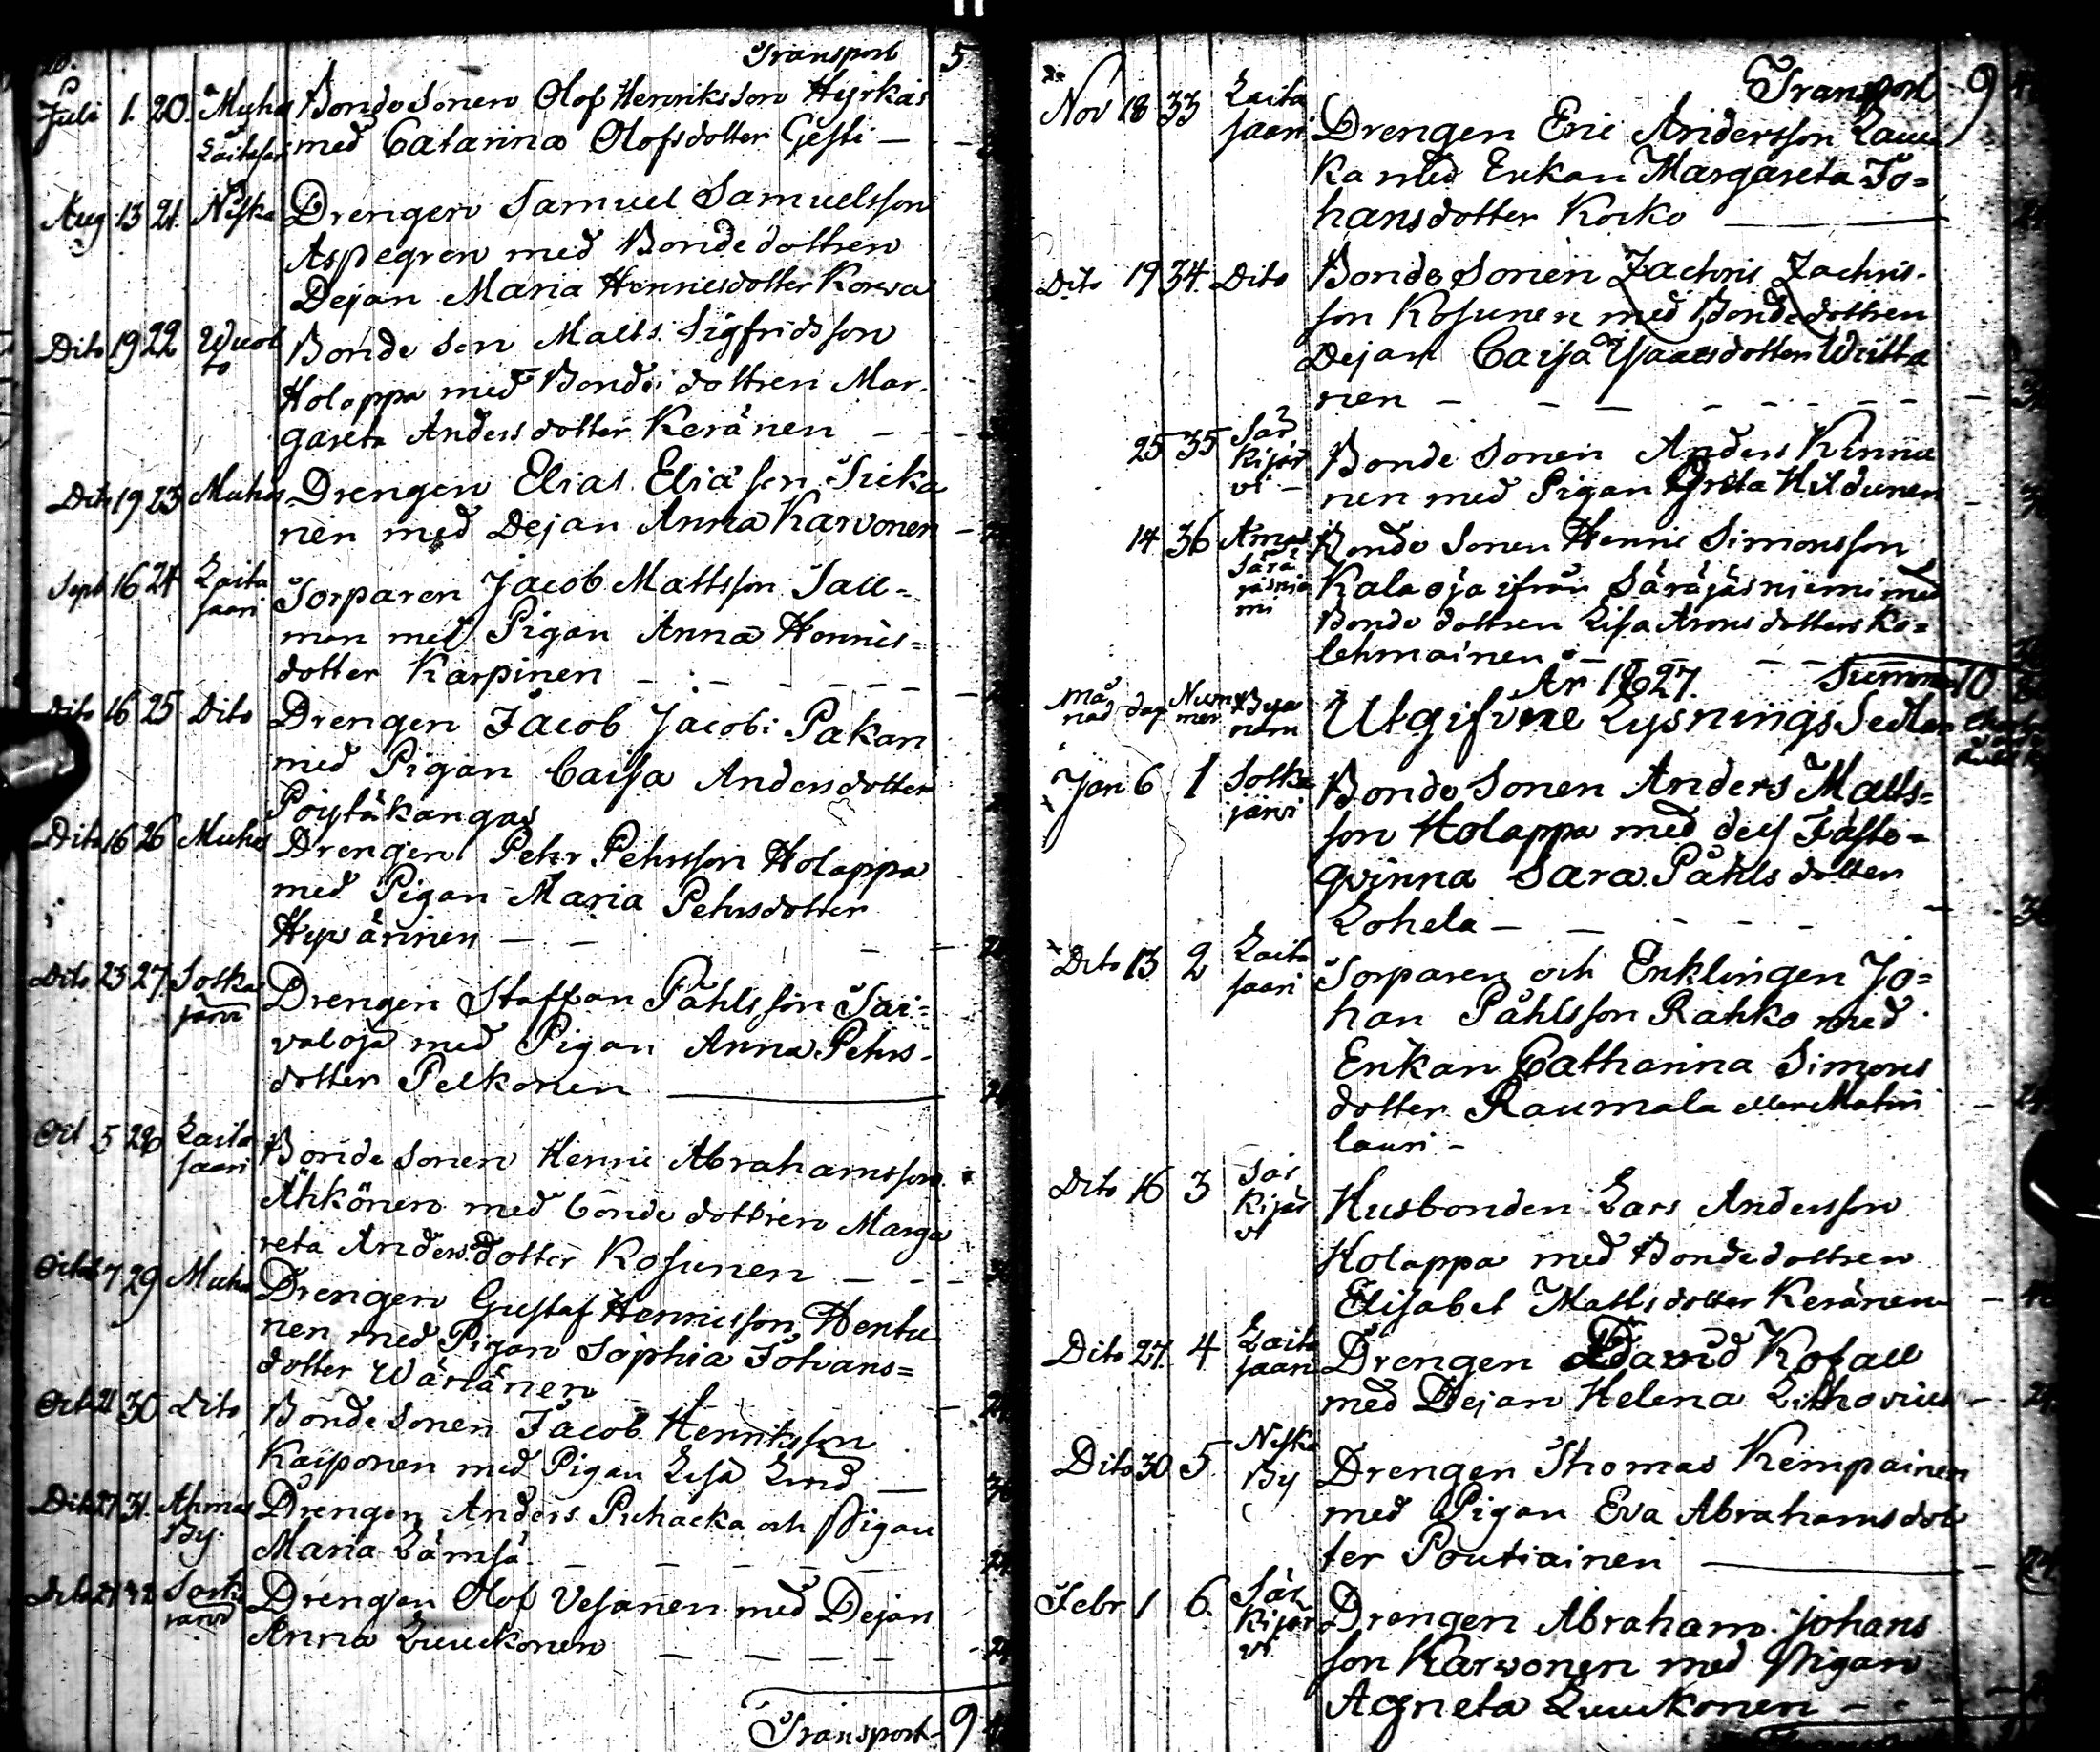 Transport 5
Juli 1. 20. Muhos Bonde Sonen Olof Henriksson Hyrkäs
Laitasari med Catarina Olofsdotter Gesti —
Aug 13 21. Niska Drengen Samuel Samuelsson
Aspegren med Bonde dottren
Dejan Maria Henricsdotter Korva
Dito 19 22 Wuol Bonde Son Matts Sigfridsson
to Holappa med Bonde dottren Mar-
gareta Anders dotter Keränen — —
Dito 19 23 Muhos Drengen Elias Eliasson Sicka
nen med Dejan Anna Karvonen —
Sept 16 24 Laita Torparen Jacob Mattsson Sall-
saari man med Pigan Anna Henrics=
dotter Karpinen — — — — —
Dito 16 25 Dito Drengen Jacob Jacobs: Pakan
med Pigan Caisa Andersdotter
Pöytäkangas
Dito 16 26 Muhos Drengen Pehr Pehrsson Holappa
med Pigan Maria Pehrsdotter
Hyvärinen — — — —
Dito 23 27. Sotka Drengen Staffan Påhlsson Sar=
järvi valoja med Pigan Anna Pehrs-
dotter Pelkonen —
Oct 5 28 Laita Bonde Sonen Henric Abrahamsson
saari Ähkönen med bonde dottren Marga
reta Anders dotter Kosunen — — —
Octob 7 29 Muhos Drengen Gustaf Henricsson Hentu
nen med Pigan Sophia Johans=
dotter Wärlänen
Oct 21 30 Dito Bonde Sonen Jacob Henriksson
Kaiponen med Pigan Lisa Lind —
Dito 27 31. Ahmas Drengen Anders Puhacka och Pigan
By. Maria Lämsä — — — — —
Dito 27 32 Sark Drengen Olof Vesanen med Dejan
järvi Anna Luuckonen — — — —
Transport 9
Transport 9
Nov 18 33 Laita Drengen Eric Andersson Lauu
saari ka med Enkan Margareta Jo=
hansdotter Korko —
Dito 19 34. Dito Bonde Sonen Zachris Zachris-
son Kosunen med Bonde dottren
Dejan Caisa Isaacsdotter Wuitta
nen — — — — — — —
25 35 Sär Bonde Sonen Anders Kinnu
kijär nen med Pigan Greta Hildunen
vi —
14 36 Ahmas Bonde Sonen Henric Simonsson
Särä Kalaoja ifrån Säräjäsniemi med
jäsnie Bonde dottren Lisa Arons dotter Ko=
mi lehmainen — — —
År 1827. Summa 10
Må Dag Num Byа Utgifvne Lysnings Sedlar
nad mer nam
Jan 6 1 Sotka Bonde Sonen Anders Matts=
järvi son Holappa med des Fäste=
qvinna Sara Påhls dotter
Lohela — — — — —
Dito 13 2 Laita Torparen och Enklingen Jo=
saari han Påhlsson Rahko med
Enkan Catharina Simons
dotter Raumala eller Matin
lauri —
Dito 16 3 Sär Husbonden Lars Andersson
kijär Holappa med Bonde dottren
vi Elisabet Matts dotter Keränen
Dito 27. 4 Laita Drengen David Kofall
saari med Dejan Helena Lithovius
Dito 30 5 Niska Drengen Thomas Kempainen
By med Pigan Eva Abrahamsdot
ter Poutiainen —
Febr 1 6. Sär Drengen Abraham Johans
kijär son Karvonen med Pigan
vi Agneta Luuckonen —